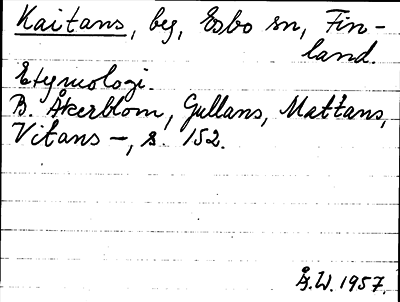 Kaitans, beg, Esbo sn, Fin-
land.
Etymologi.
B. Åkerblom, Gullans, Mattans,
Vitans –, s. 152.
Å.W. 1957.